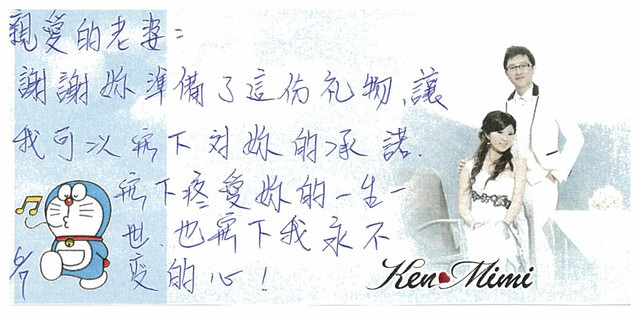 親愛的老婆：
謝謝妳準備了這份礼物，讓
我可以寫下对妳的承諾.
寫下疼愛妳的一生一
世.也寫下我永不
变的心！
Ken Mimi